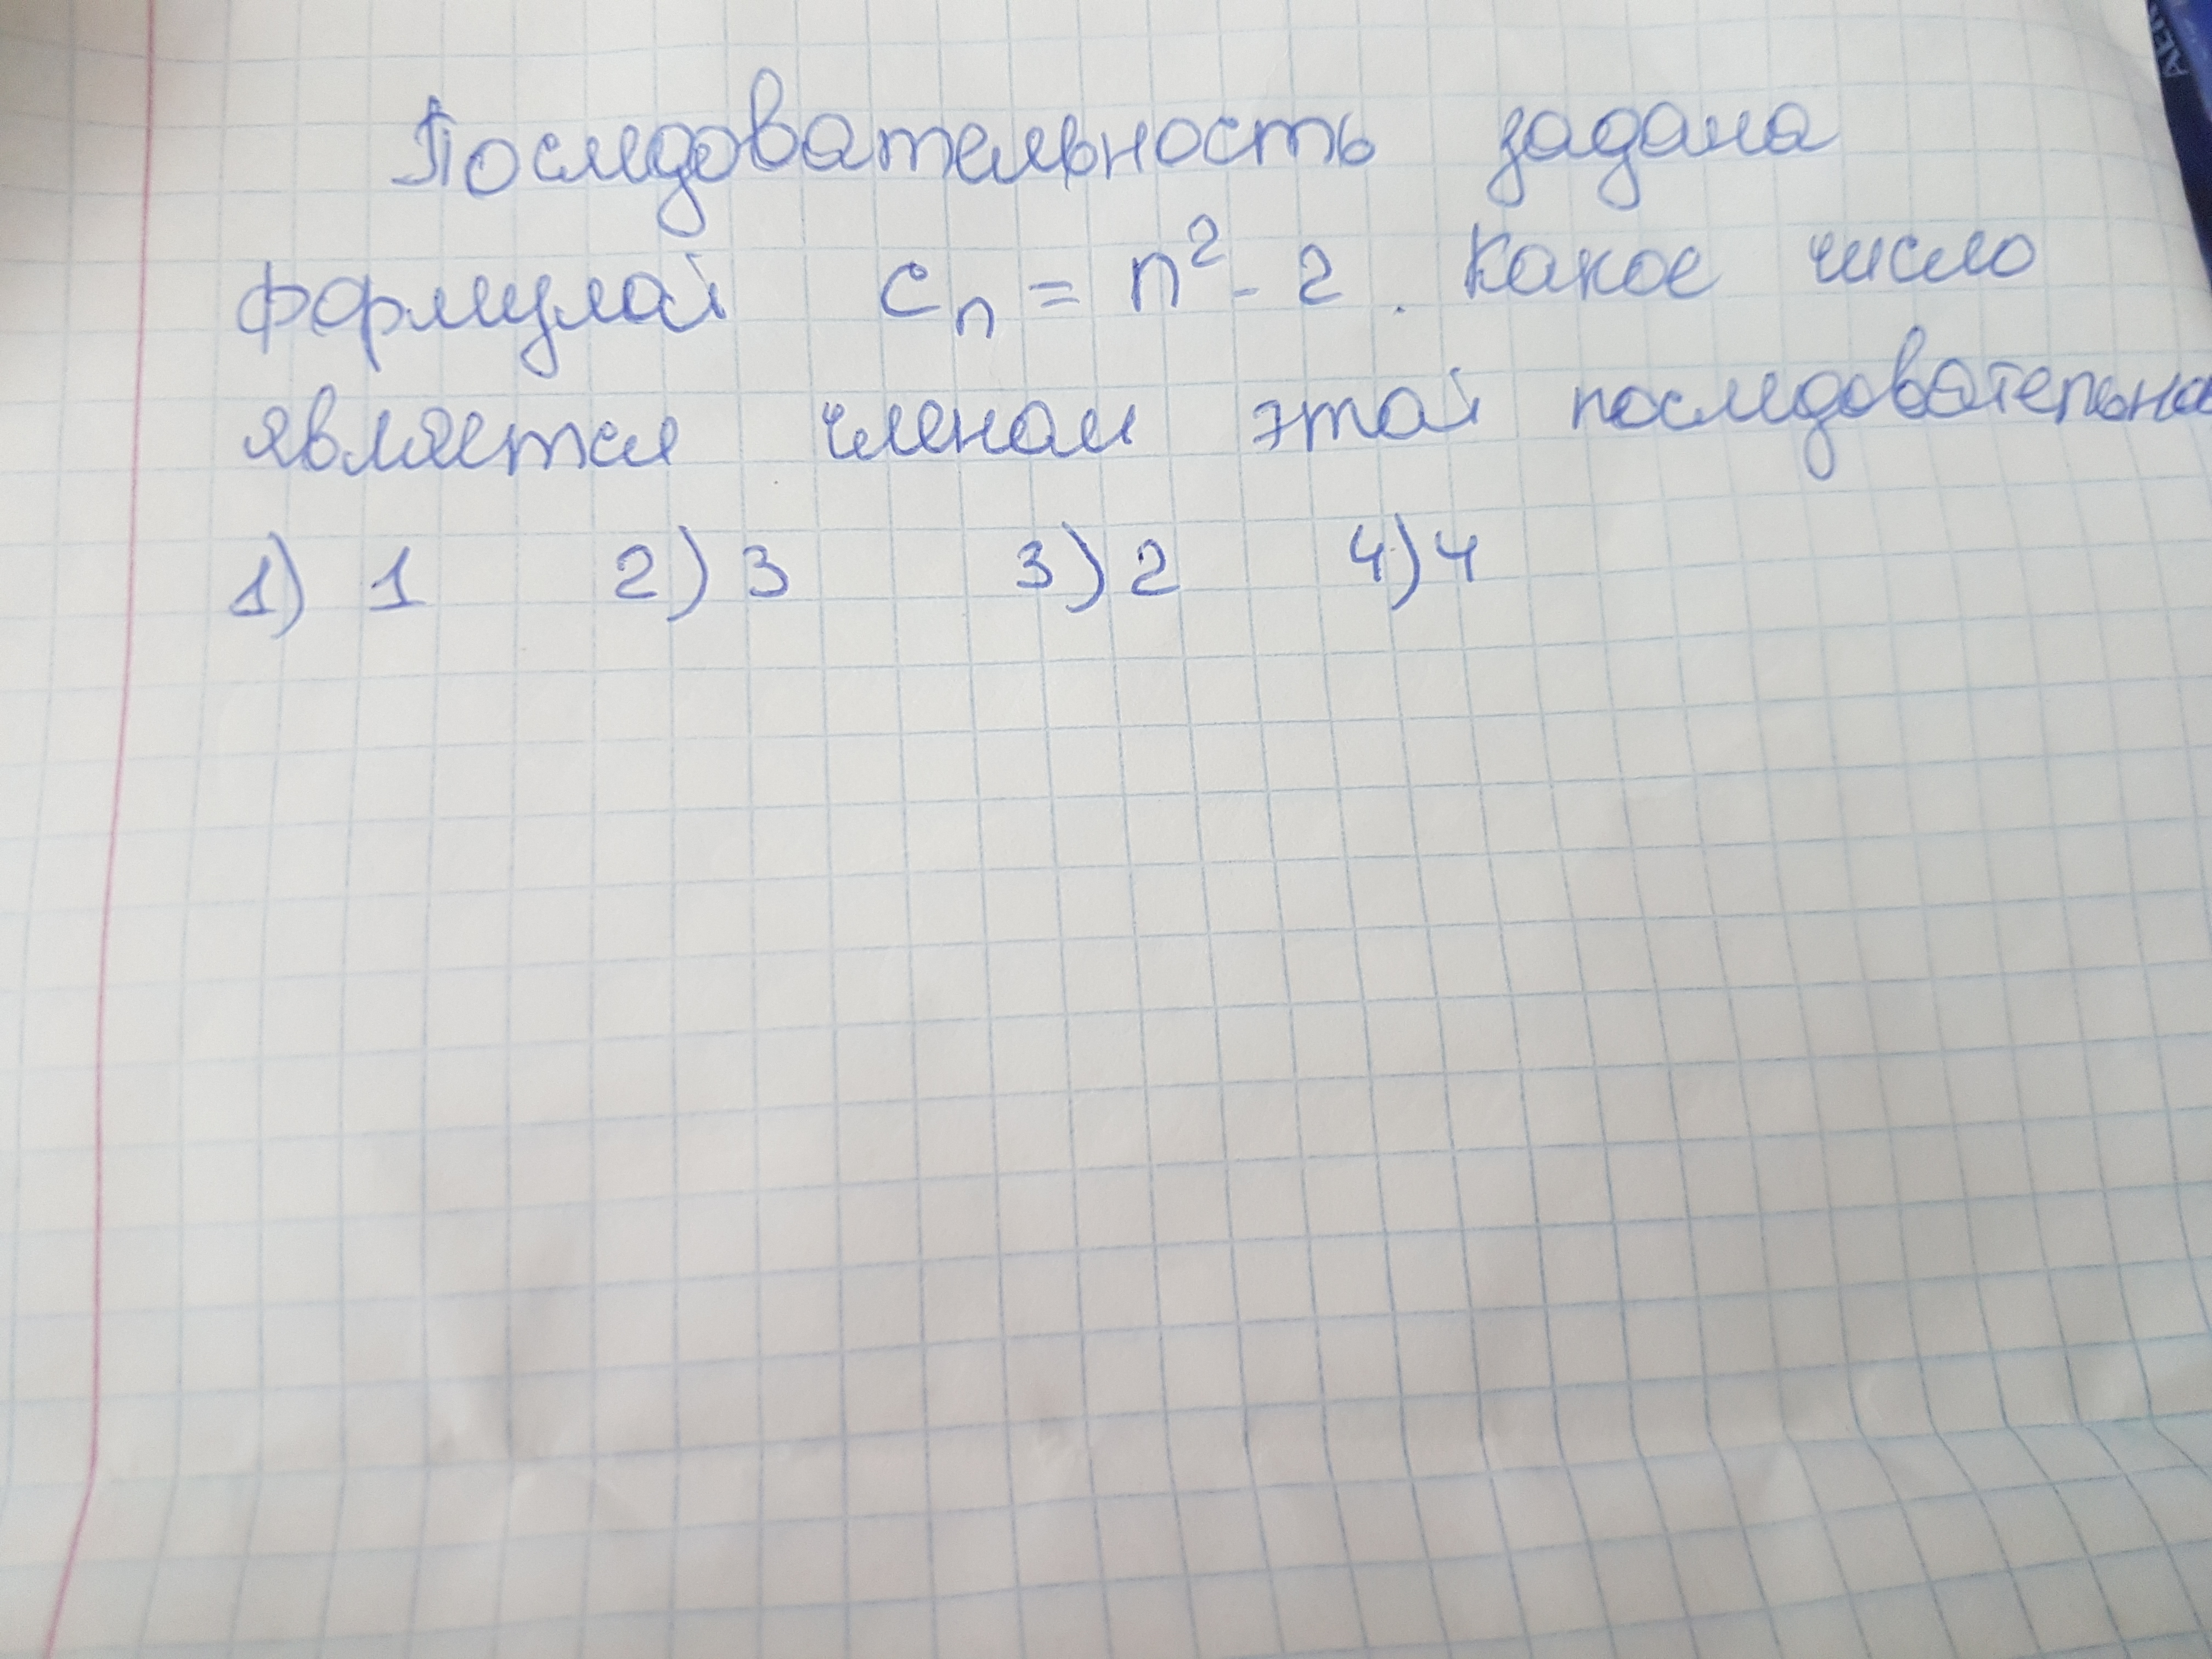 Последовательность задана
формулой cₙ = n² - 2. Какое число
является членом этой последовательно
1) 1 2) 3 3) 2 4) 4